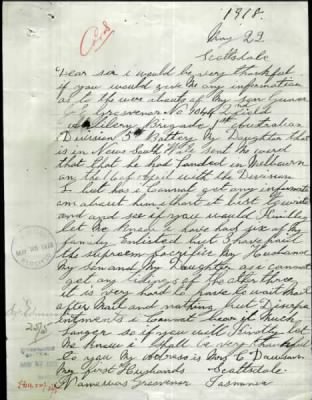 1918.
May 22
Scottsdale
Dear sir i would be very thankful
if you would give Me any information
as to the were abouts of My Son Gunner
Grosvenor No
Artilery Brigade 1st Australian
Division 5th Battery My Daughter that
is in New South Wales Sent Me word
that that he had landed in Melbourn
on the 1 of April with the Division
I but has i Cannot get any informati
on about him i thort it best to write
and and see if you would Kindley
let Me Know i have had six of My
family Enlisted but i have paid
the supreme Sacrifice My Husband
My Son and My Daughter as i cannot
get any tidings of the other three
it is very hard to have to wait Mail
after Mail and nothing but Disapp
intments i Cannot bear it Much
longer so if you will Kindly let
Me Know i Shall be very thankful
to you My address is Mrs C
My first Husbands Scottsdale
Name was Grosvenor Tasmania